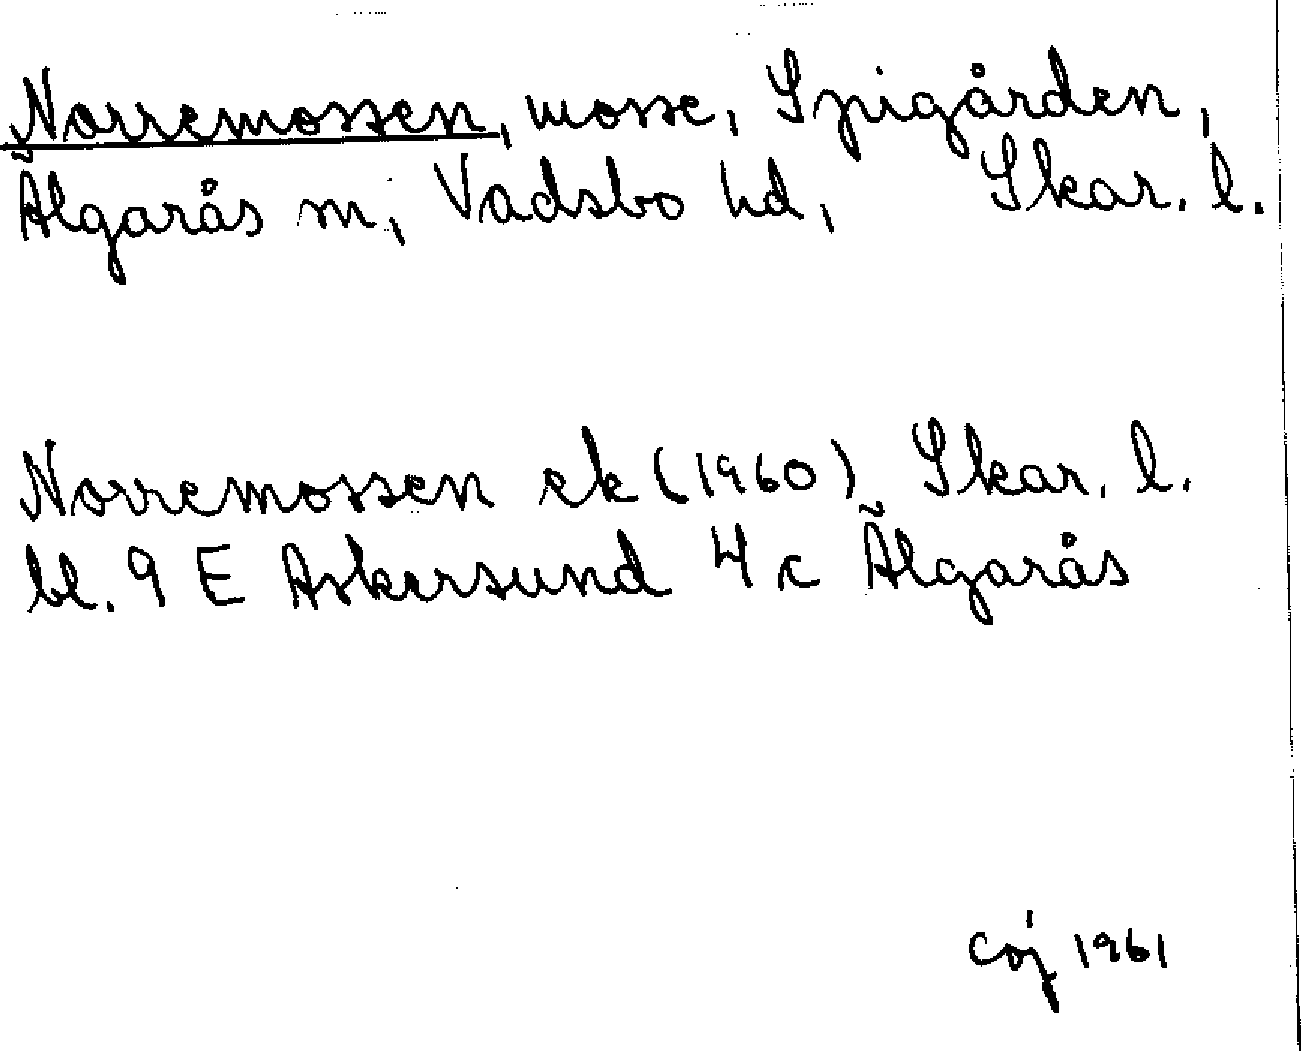 Norremossen, mosse, Spigården,
Älgarås sn, Vadsbo hd, Skar. l.
Norremossen ek (1960) Skar. l.
bl. 9 E Askersund 4 c Älgarås
1961